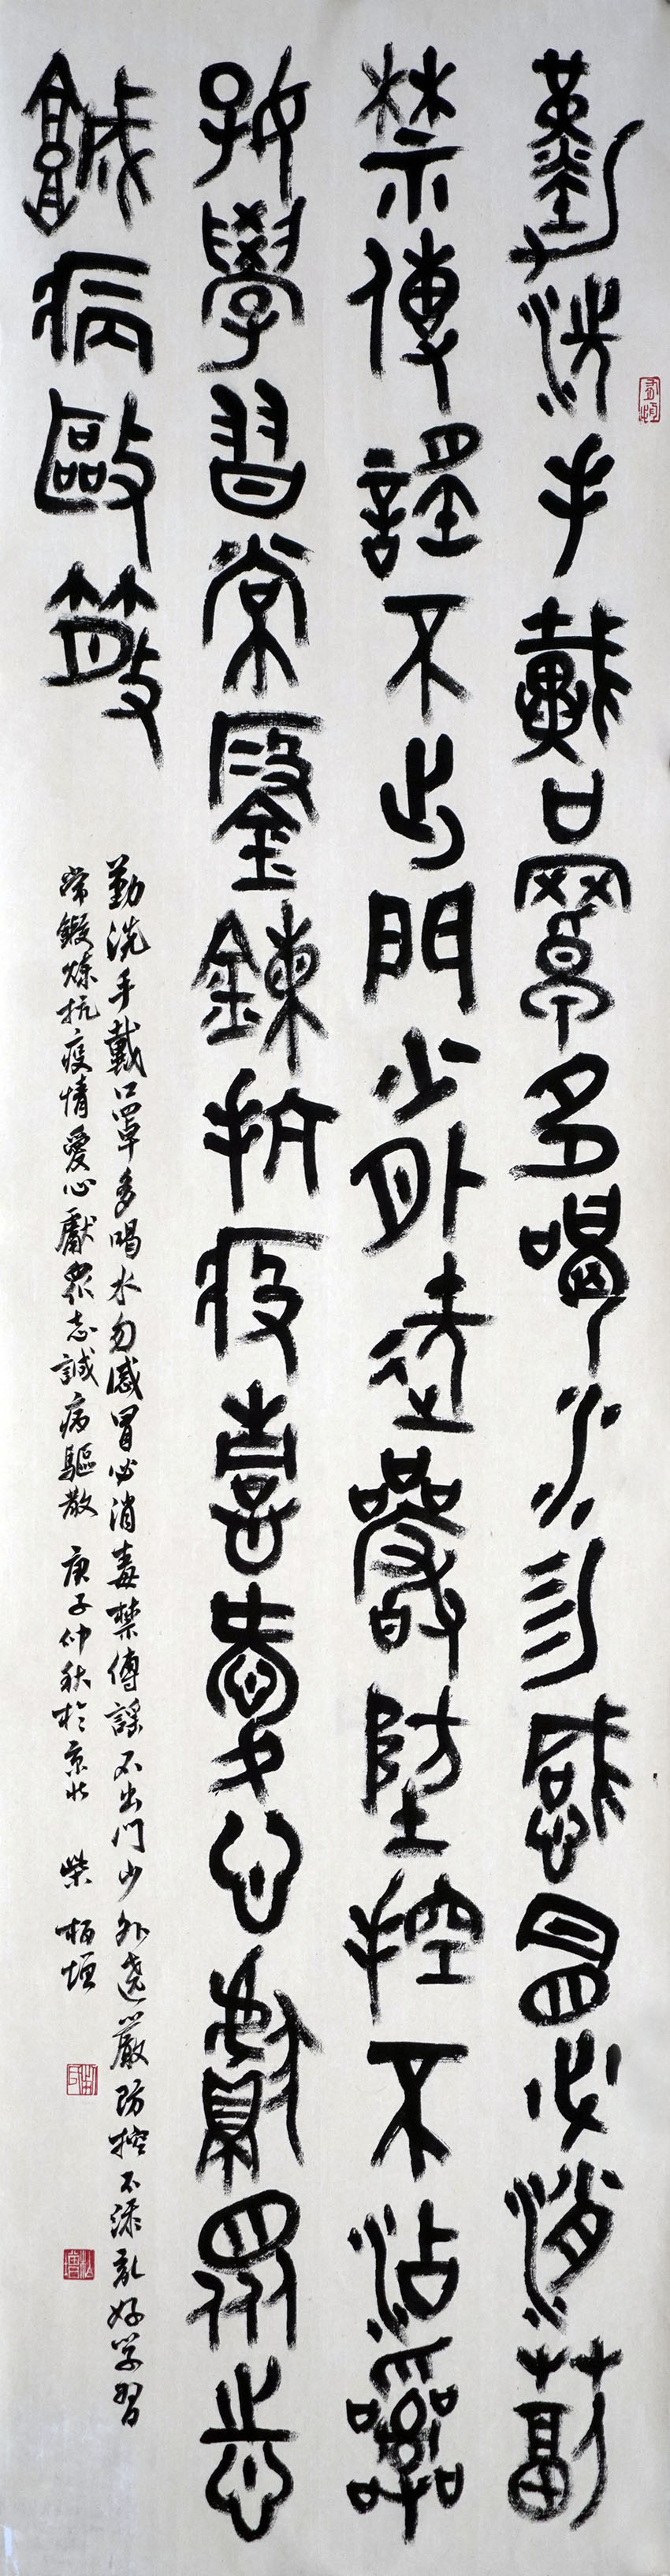 勤洗手戴口罩多喝水勿感冒必消毒
禁傳謠不出門少外遶嚴防控不沾亂
好學習常鍛鍊抗疫喜愛心獻眾志
誠病敺散
勤洗手戴口罩多喝水勿感冒必消毒禁傳謠不出門少外遶嚴防控不添亂好学習
常鍛煉抗疫情愛心獻眾志誠病驅散 庚子仲秋於京北 柴栢恒